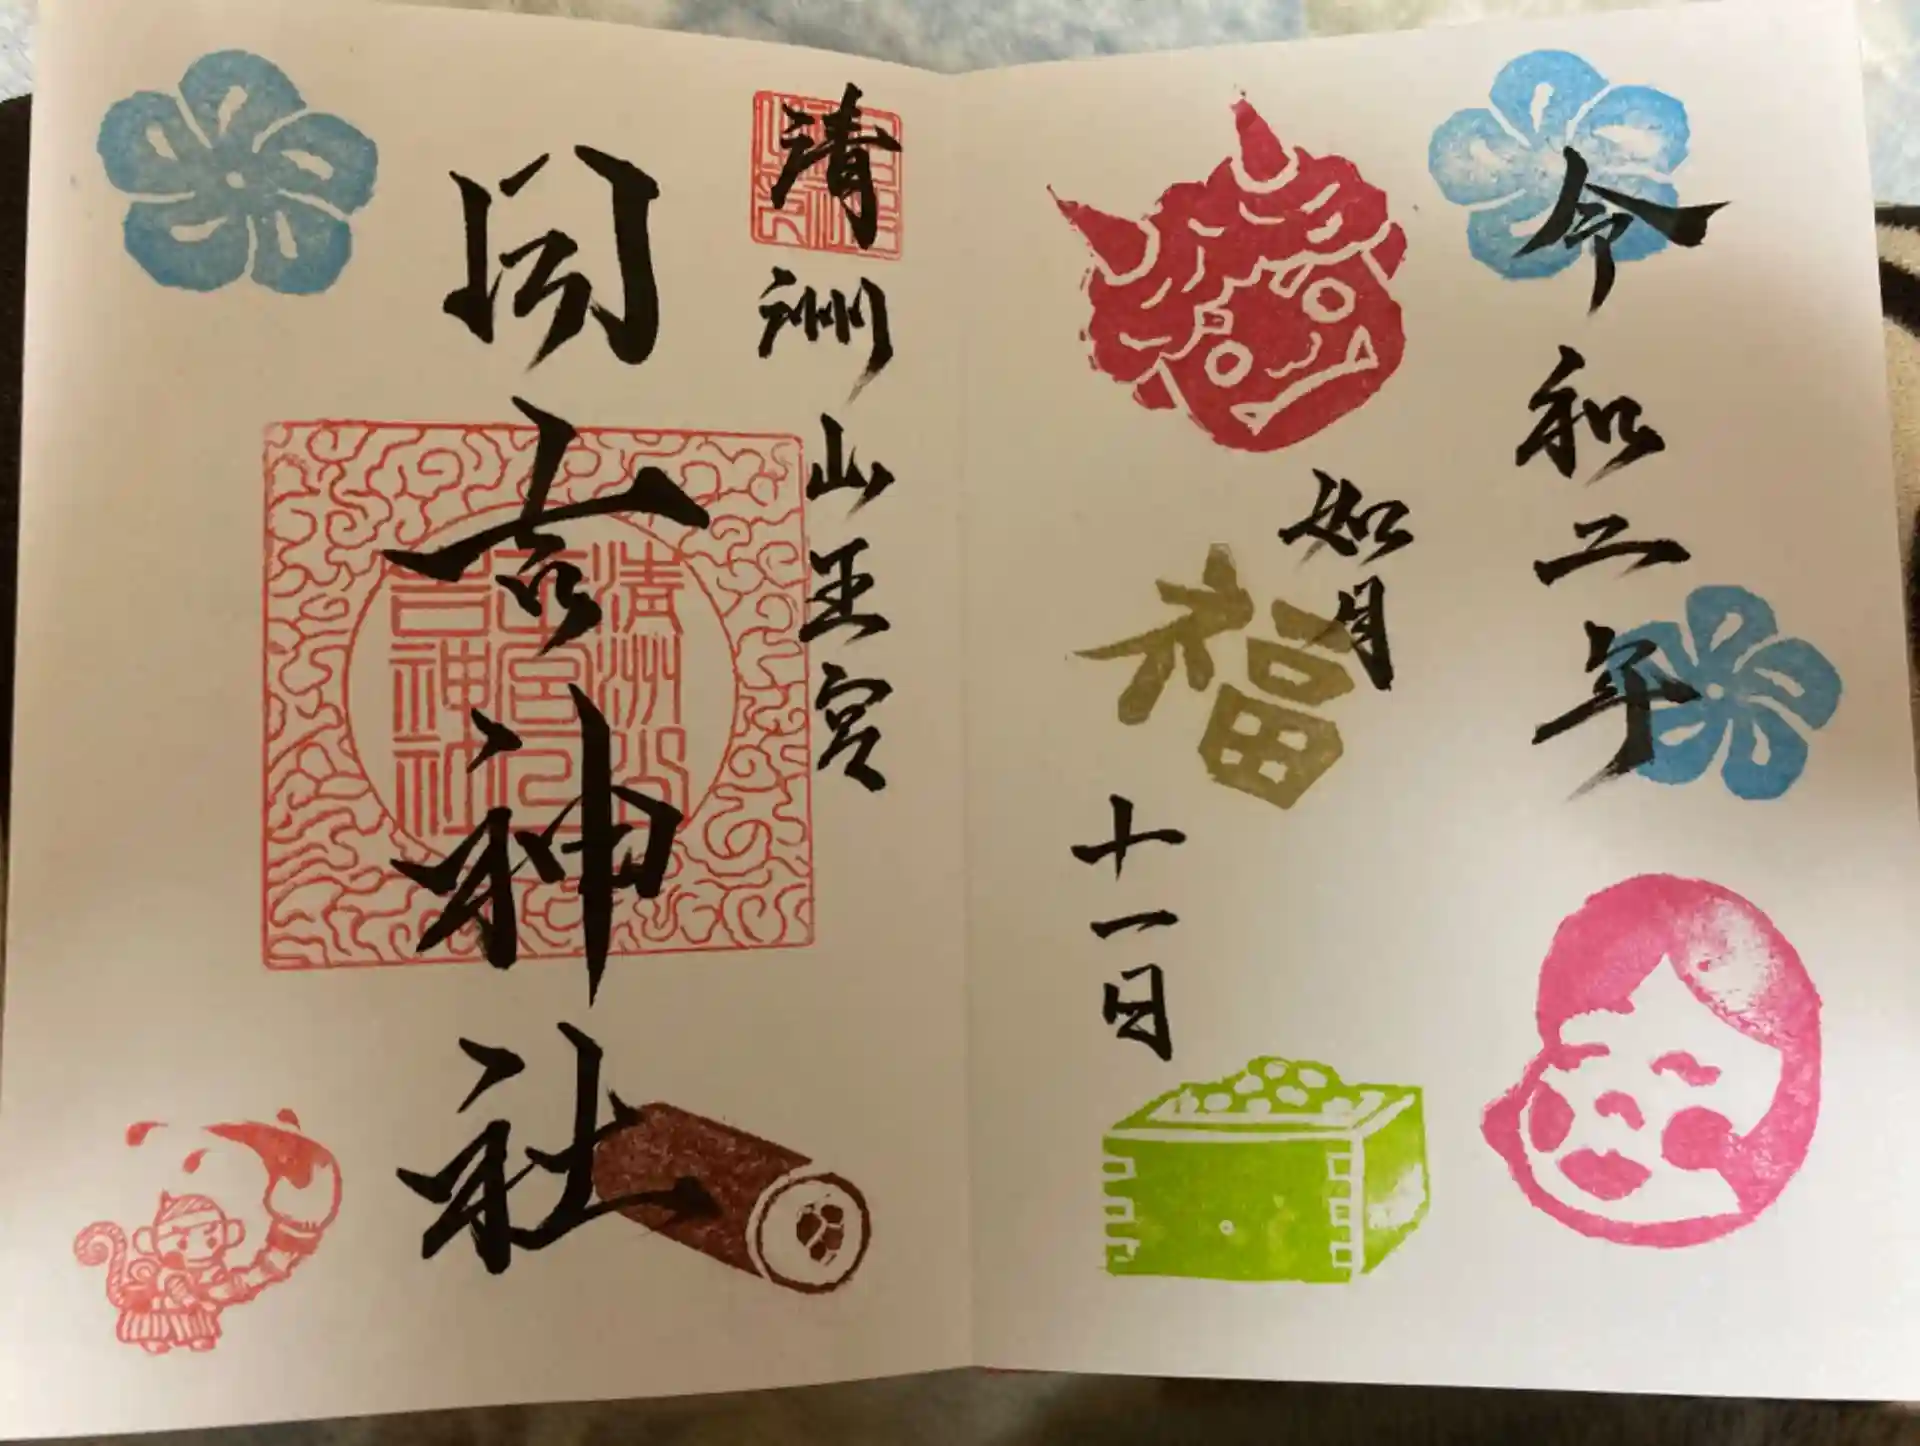 令和二年
如月
福
十一日
清洲山王宮
日吉神社
清洲山
王宮日
吉神社